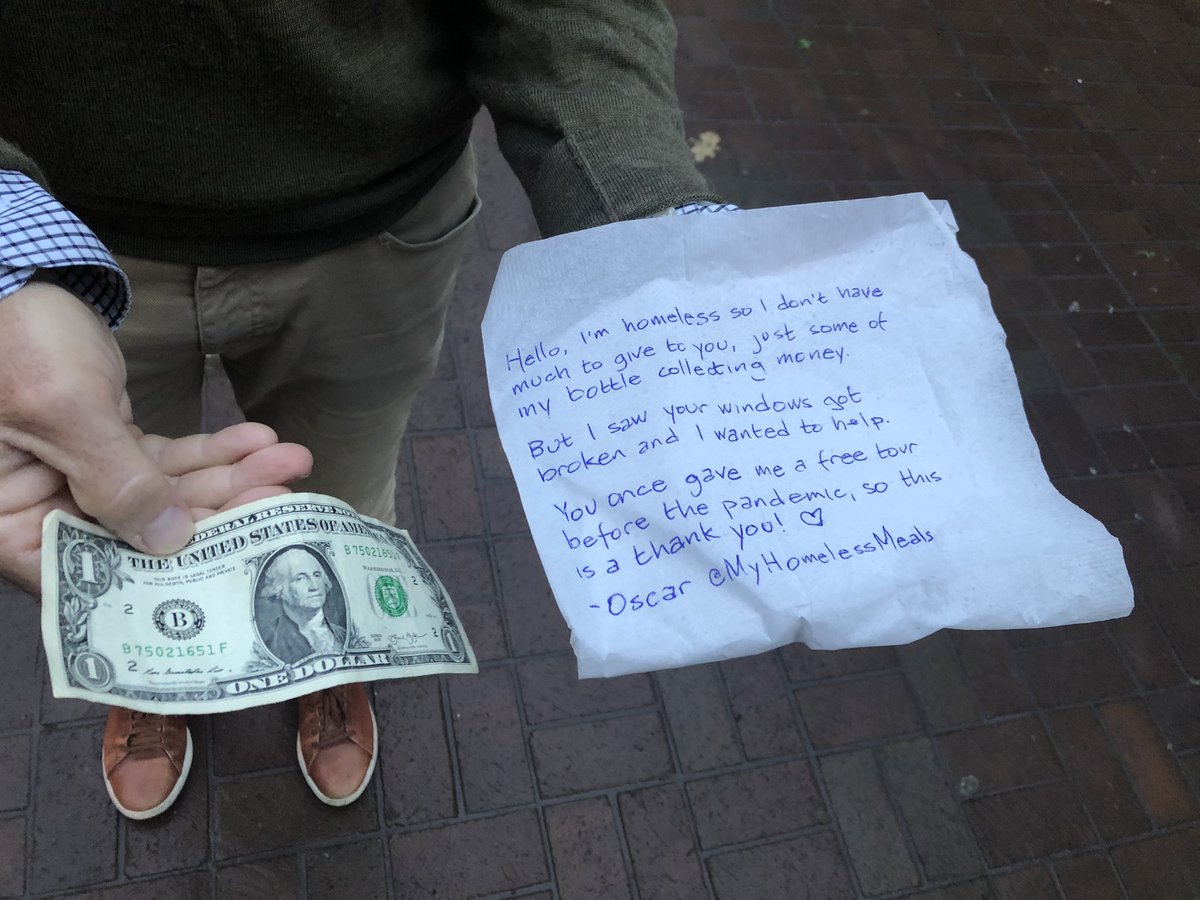 Hello, I'm homeless so I don't have
much to give to you, just some of
my bottle collecting money.
But I saw your windows got
broken and I wanted to help.
You once gave me a free tour
before the pandemic, so this
is a thank you! ♡
-Oscar @MyHomelessMeals
FEDERAL RESERVE NOTE
THE UNITED STATES OF AMERICA
THIS NOTE IS LEGAL TENDER
FOR ALL DEBTS, PUBLIC AND PRIVATE
B 75021651
WASHINGTON, D.C.
1
2
B
2
B 75021651 F
2
2
1
ONE DOLLAR
1